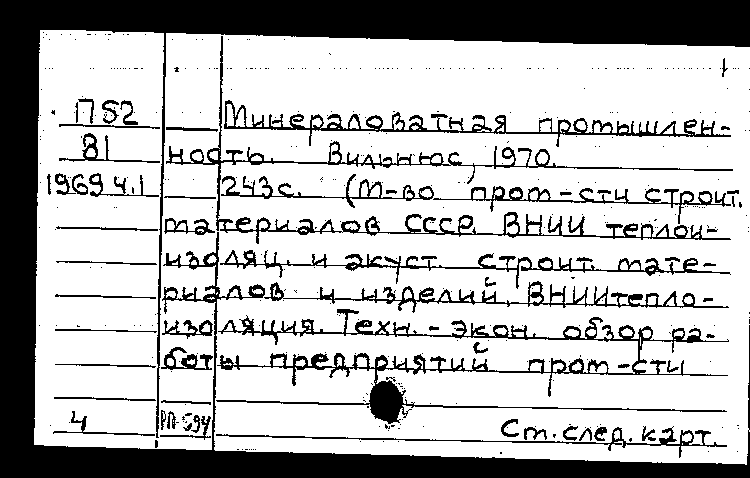 П52 Минераловатная промышлен-
81 ность. Вильнюс, 1970.
1969 ч.1 243с. (М-во пром-сти строит.
материалов СССР. ВНИИ теплои-
изоляц. и акуст. строит. мате-
риалов и изделий. ВНИИтепло-
изоляция. Техн.-экон. обзор ра-
боты предприятий пром-сти
4 РП-594 См. след. карт.